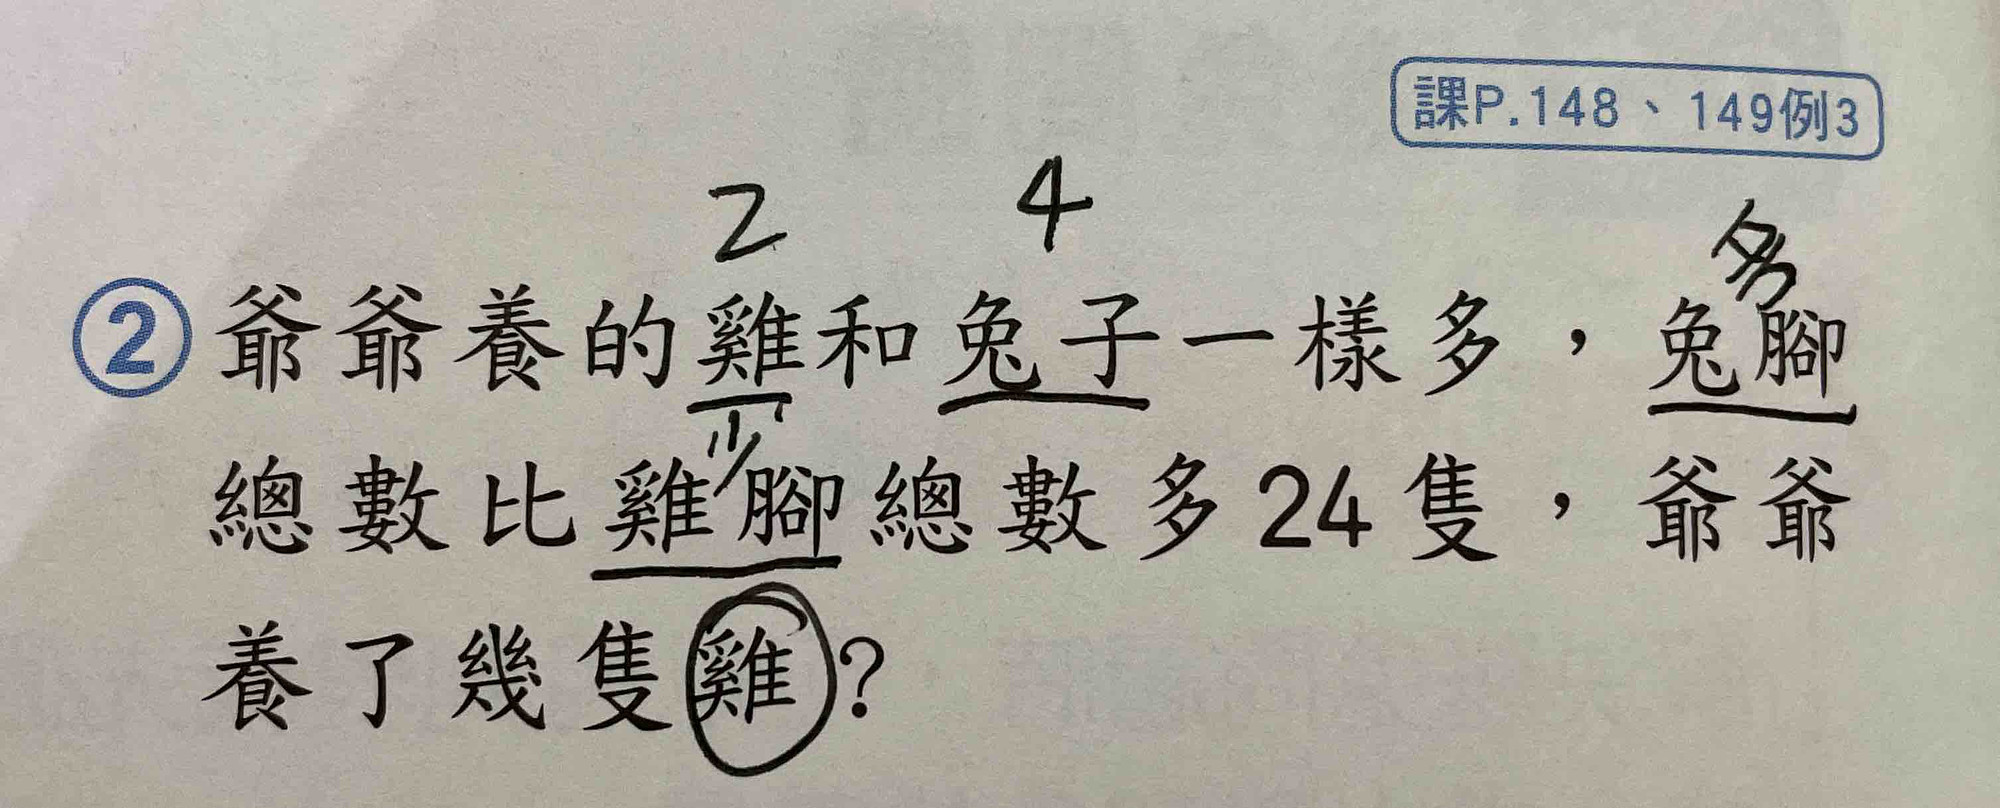 課P.148、149例3
2 4
多
②爺爺養的雞和兔子一樣多，兔腳
少
總數比雞腳總數多24隻，爺爺
養了幾隻雞？